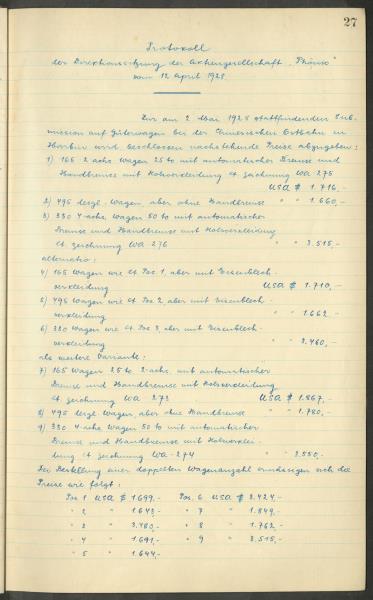 27
Protokoll
der Direktionssitzung der Aktiengesellschaft "Phönix"
vom 12 April 1928
Zur am 2 Mai 1928 stattfindenden Sub-
mission auf Güterwagen bei der Chinesischen Ostbahn in
Harbin wird beschlossen nachstehende Preise abzugeben:
1) 165 2 achs. Wagen 25 to mit automatischer Bremse und
Handbremse mit Holzverkleidung lt. Zeichnung WA 275
USA $ 1.716,-
2) 495 desgl. Wagen, aber ohne Handbremse " " 1.660,-
3) 330 4-achs. Wagen 50 to mit automatischer
Bremse und Handbremse mit Holzverkleidung
lt. Zeichnung WA 276 " " 3.515,-
alternativ:
4) 165 Wagen wie lt Pos. 1, aber mit Eisenblech-
verkleidung USA $ 1.710,-
5) 495 Wagen wie lt Pos. 2, aber mit Eisenblech-
verkleidung " " 1.662.-
6) 330 Wagen wie lt Pos 3, aber mit Eisenblech-
verkleidung " " 3.460,-
als weitere Variante:
7) 165 Wagen 25 to 2-achs. mit automatischer
Bremse und Handbremse mit Holzverkleidung
lt Zeichnung WA 273 USA $ 1.867,-
8) 495 desgl. Wagen, aber ohne Handbremse " " 1.780,-
9) 330 4-achs Wagen 50 to mit automatischer
Bremse und Handbremse mit Holzverklei-
dung lt Zeichnung WA-274 " " 3.550,-
Bei Bestellung einer doppelten Wagenanzahl ermässigen sich die
Preise wie folgt:
Pos. 1 USA $ 1.699,- Pos. 6 USA $ 3.424,-
" 2 " 1.643,- " 7 " 1.849,-
" 3 " 3.480,- " 8 " 1.762,-
" 4 " 1.691,- " 9 " 3.515,-
" 5 " 1.644,-